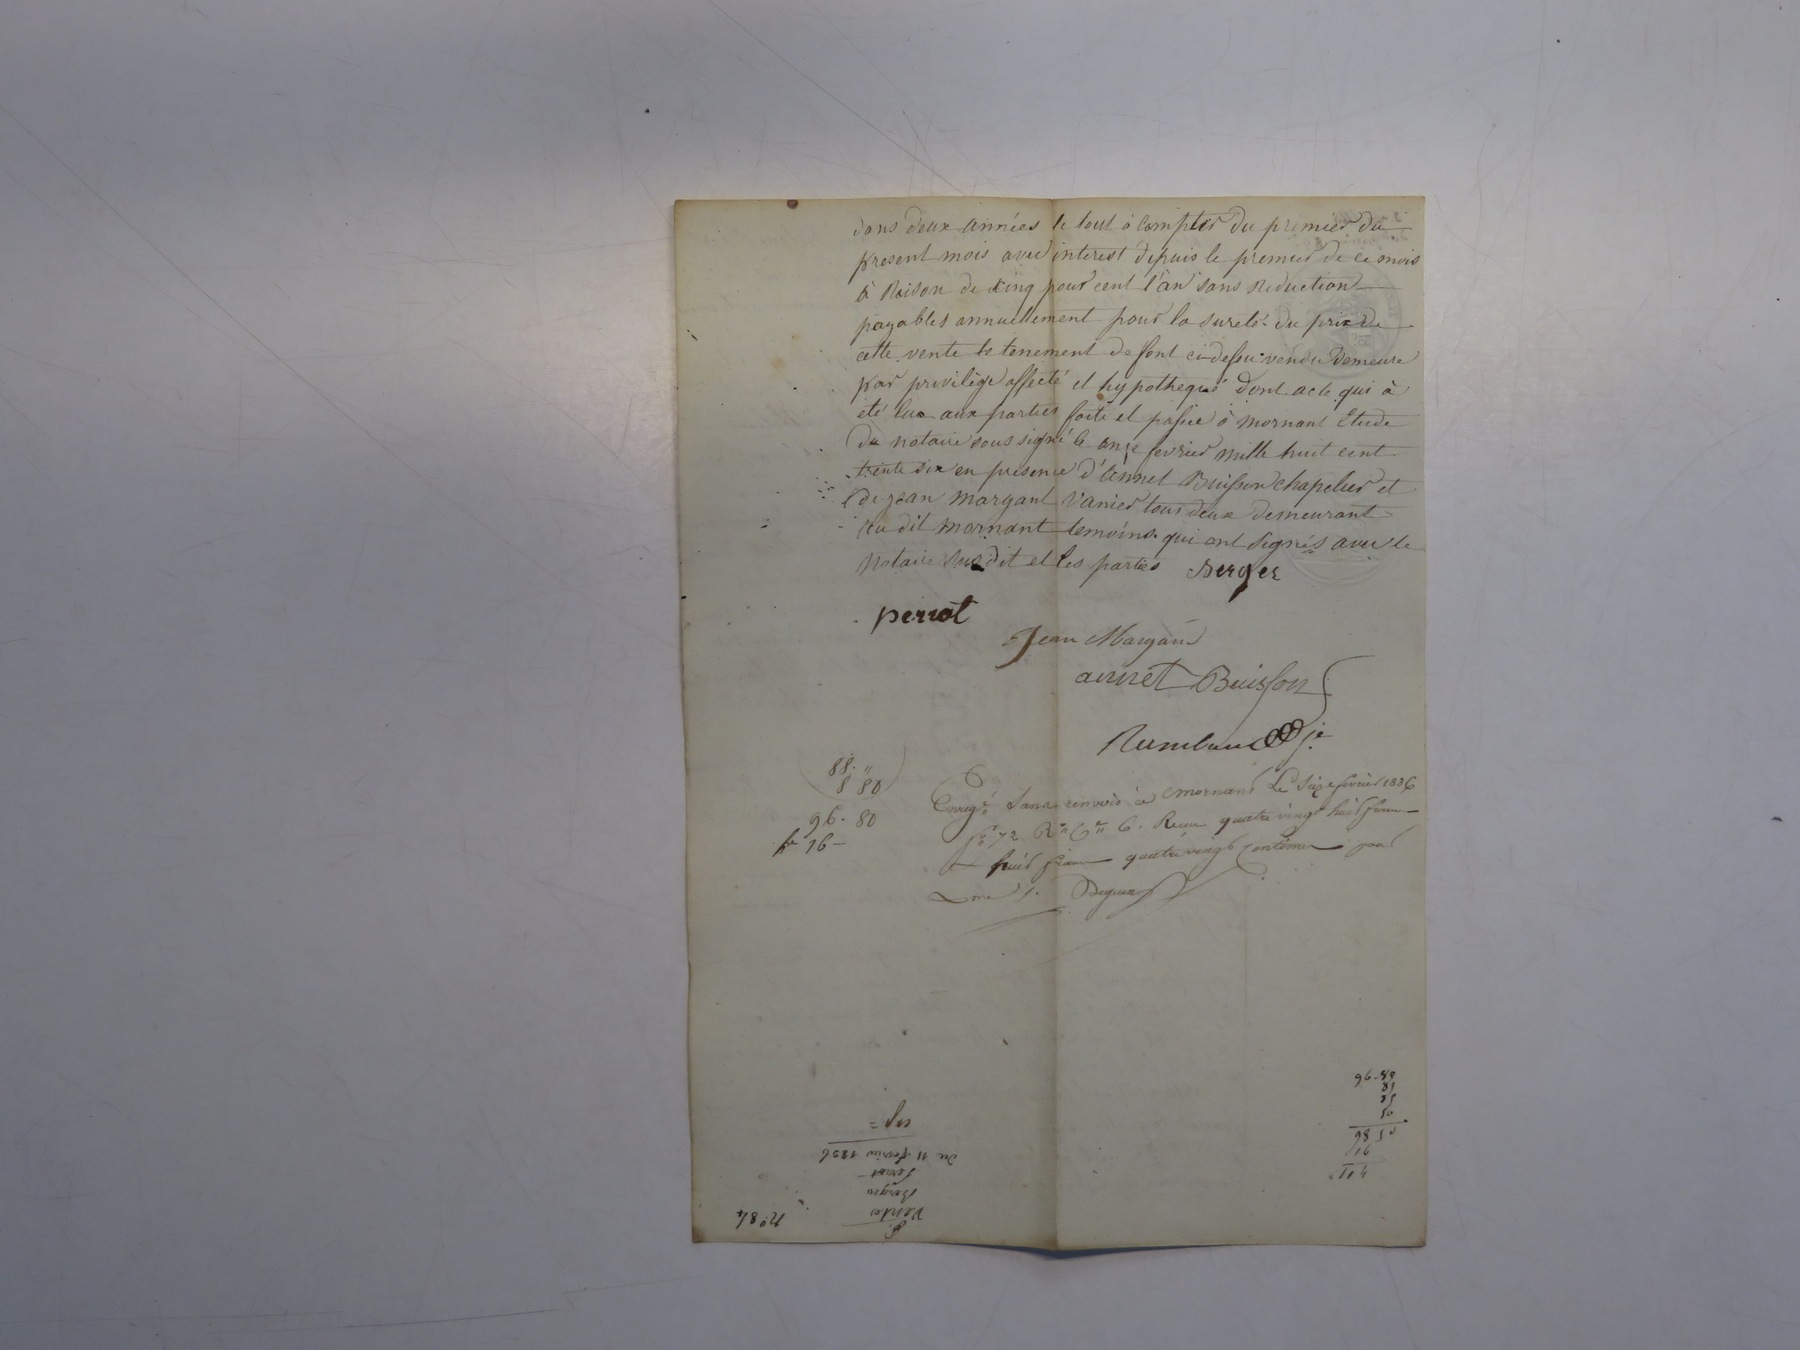 dans deux années le tout à compter du premier du
present mois avec interest depuis le premier de ce mois
à Raison de cinq pour cent l'an sans Reduction
payables annuellement pour la sureté du prix de
cette vente le tenement de font ci-dessu vendu Demeure
par privilège affecté et hypothequé Dont acte qui à
été lue aux parties faite et passée à mornant Etude
du notaire sous signé le onze fevrier mille huit cent
trente six en presence d'annet Buisson chapelier et
de jean margant Vanier tous deux demeurant
au dit mornant temoins qui ont signés avec le
notaire susdit et les parties Berger
perrot
Jean Margant
annet Buisson
88. "
8 80
96. 80
16 —
Enregé sans renvois à Mornant Le seize fevrier 1836
fº 72 Rº Cse 6. Recu quatre vingt huit francs
huit francs quatre vingt centimes pour
88-96
18
52
50
86
91
411
Vente
Berger
Perrot
du 11 fevrier 1836
exp =
Nº 84